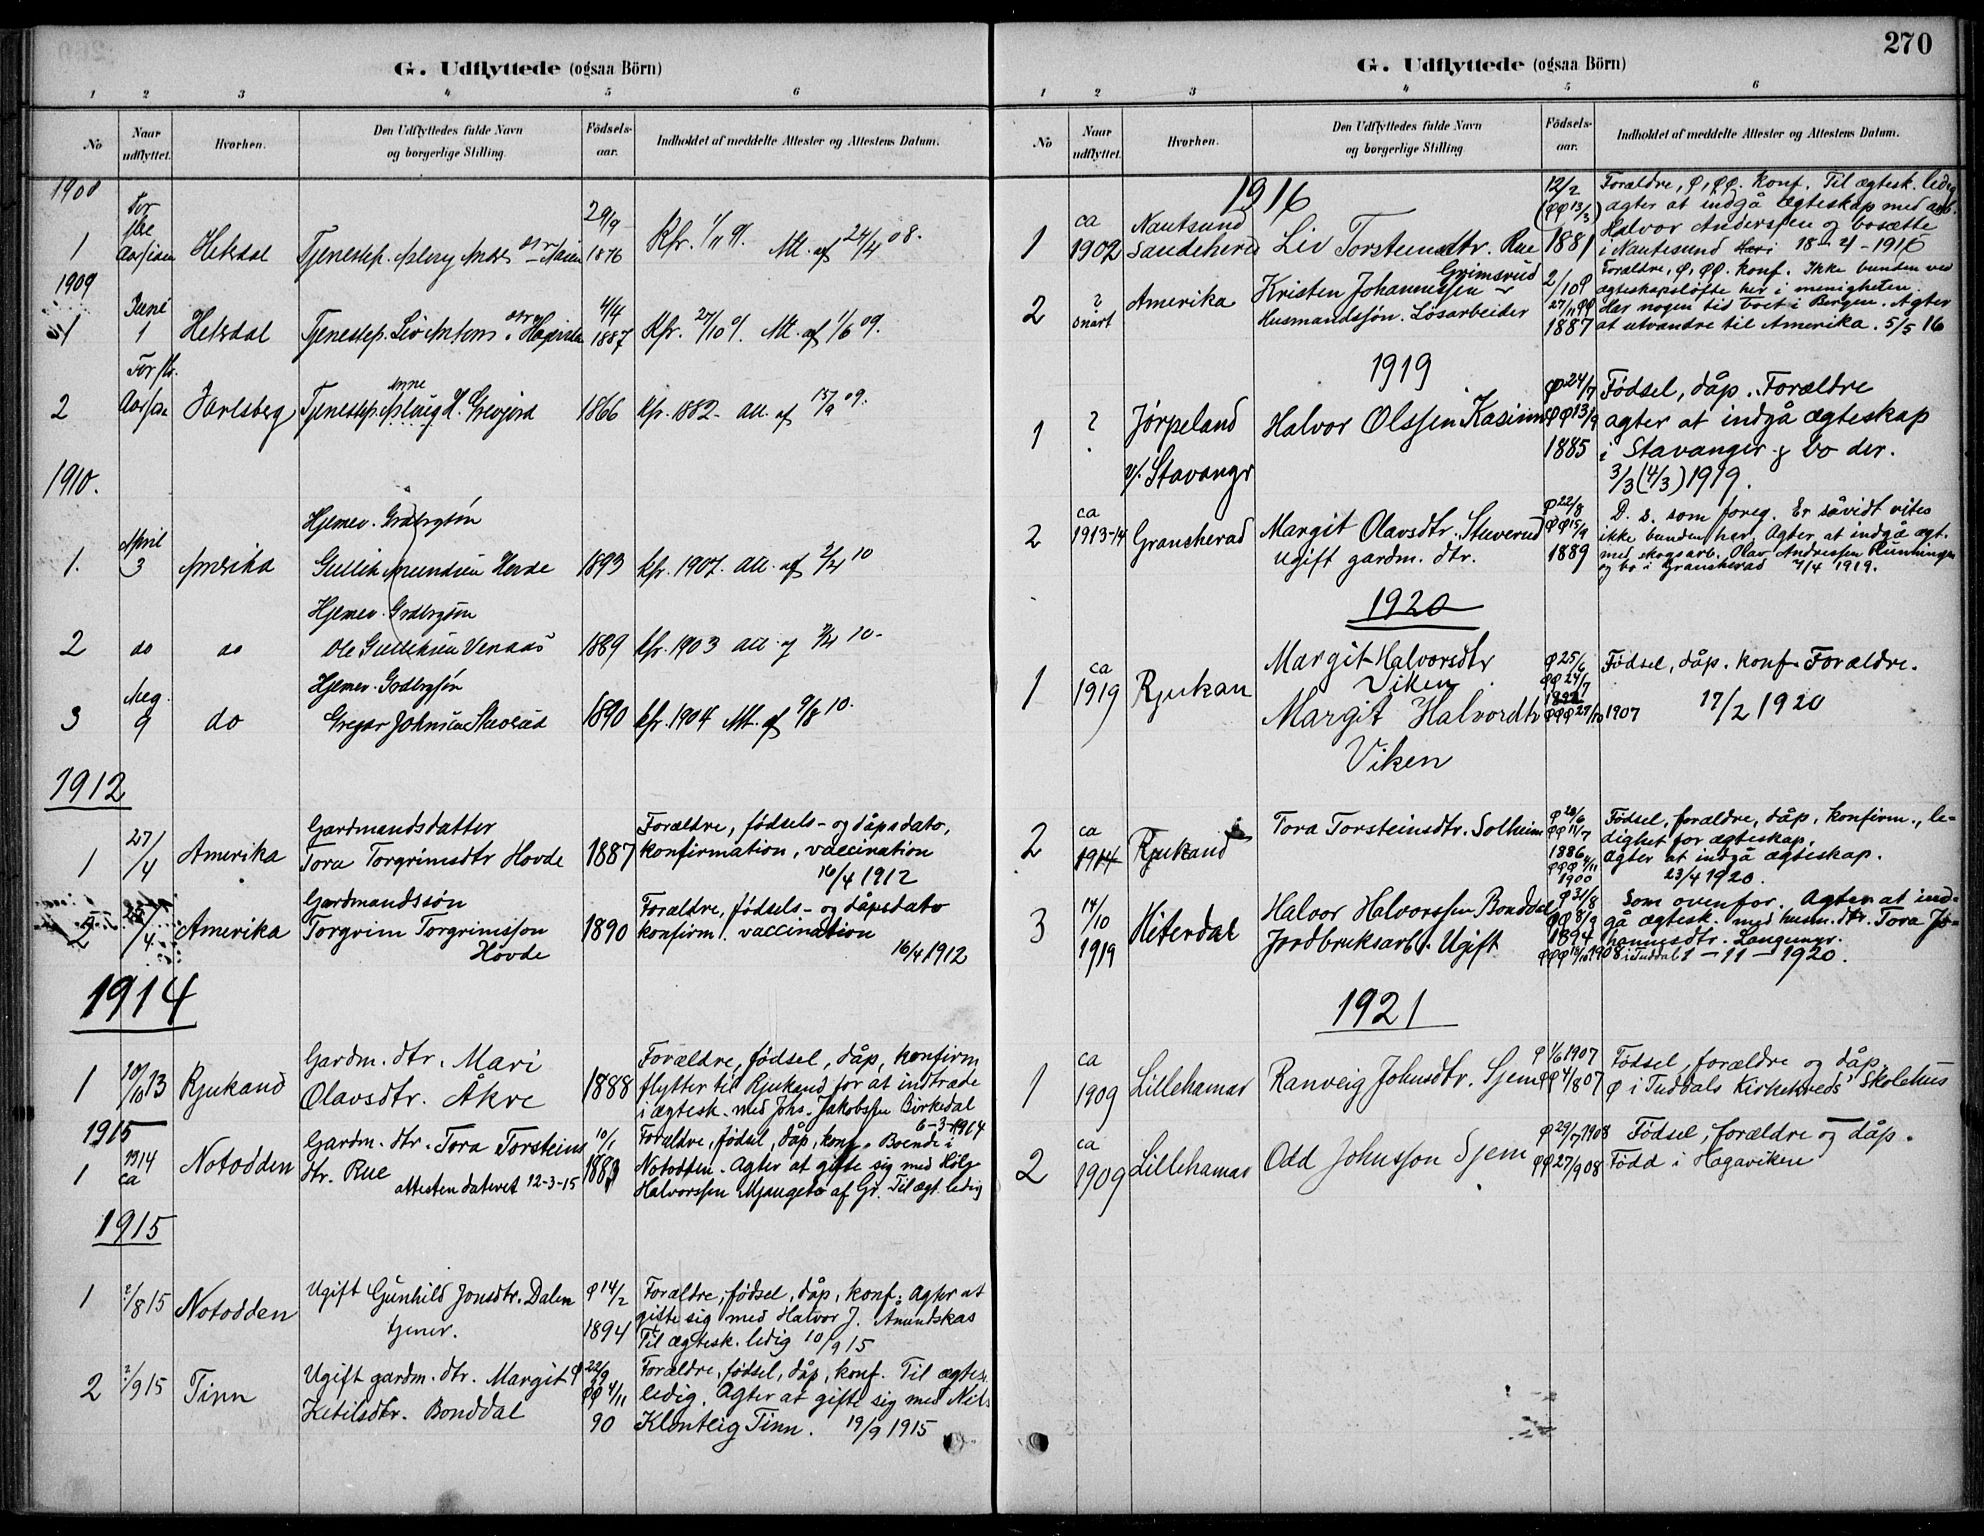 270
G. Udflyttede (ogsaa Börn)
1 2 3 4 5 6
No
Naar udflyttet.
Hvorhen.
Den Udflyttedes fulde Navn og borgerlige Stilling.
Födsels-aar.
Indholdet af meddelte Attester og Attestens Datum.
1908
1 Aar siden
1876
1909
1 Juni 1
4/4 1887
2
Anne
1866 Kfr. 1882. Att. af 09.
1910.
1. April 3 Amerika
1893 Kfr. 1907. Att. af 2/4 10
2 do do
1889 Kfr. 1903 Att. af 2/4 10.
3 Aug. 9 do
1890 Kfr. 1904 Att. af 9/8 10.
1912
1 27/4 Amerika
Gardmandsdatter
Tora Torgrimsdtr Hovde
1887
Forældre, fødsels- og dåpsdato,
konfirmation, vaccination
16/4 1912
2 Amerika
Gardmandssøn
Torgrim Torgrimsson
Hovde
1890
Forældre, fødsels- og dåpsdato
konfirm. vaccination
16/4 1912
1914
1 Rjukand
Gardm. dtr. Mari
Olavsdtr. Åkre
1888
Forældre, fødsel, dåp, konfirm
flytter til Rjukand for at indtræde
i ægtesk. med Johs. Jakobssen Birkedal
6-3-1914
1915
1 1914 ca Notodden
Gardm. dtr. Tora Torsteins
dtr. Rue
attesten dateret 12-3-15
10/1 1883
Forældre, fødsel, dåp, konf. Boende i
Notodden. Agter at gifte sig med
Halvorssen af Gr. Til ægt. ledig
1915
1 ?/8 15 Notodden
Ugift Gunhild Jonsdtr. Dalen
tjener.
φ 14/2
1894
Forældre, fødsel, dåp, konf. Agter at
gifte sig med Halvor J. Åmundskas
Til ægtesk. ledig 10/9 15
2 ?/9 15 Tinn
Ugift gardm. dtr. Margit
Ketilsdtr. Bonddal
φ 22/9
φφ 4/11
90
Forældre, fødsel, dåp, konf. Til ægtes.
ledig. Agter at gifte sig med Nils
Klonteig Tinn. 19/9 1915
G. Udflyttede (ogsaa Börn)
1 2 3 4 5 6
No
Naar udflyttet.
Hvorhen.
Den Udflyttedes fulde Navn og borgerlige Stilling.
Födsels-aar.
Indholdet af meddelte Attester og Attestens Datum.
1916
1 ca 1902
Nautsund
Sandeherred
Liv Torsteinsdtr. Rue
12/2
(φφ 13/3)
1881
Forældre, φ, φφ. konf. Til ægtesk. ledig
agter at indgå ægteskap med arb.
Halvor Anderssen og bosætte
i Nautesund 18-4-1916
2 ? snart
Amerika
Kristen Johannessen Grimsrud
Husmandssøn. Løsarbeider
2/10 φ
27/11 φφ
1887
Forældre, φ, φφ. konf. Ikke bunden ved
ægteskapsløfte her i menigheten.
Har nogen tid boet i Bergen. Agter
at utvandre til Amerika. 5/5 16
1919
1 ?
Jørpeland
v/. Stavangr
Halvor Olssen Kasin
φ 24/7
φφ 13/9
1885
Fødsel, dåp. Forældre
agter at indgå ægteskap
i Stavanger & bo der.
3/3 (4/3) 1919.
2 ca 1913-14
Gransherad
Margit Olavsdtr. Stuverud
Ugift gardm. dtr.
φ 22/8
φφ 15/9
1889
D. s. som foreg. Er såvidt vites
ikke bunden her. Agter at indgå ægt.
med skogsarb. Olav Andressen Rünningen
og bo i Gransherad 7/4 1919.
1920
1 ca 1919
Rjukan
Margit Halvorsdtr
Viken
Margit Halvordtr
Viken
φ 25/6
φφ 24/7
1892
φφφ 27/10 1907
Fødsel, dåp. konf. Forældre.
17/2 1920
2 ca 1914
Rjukand
Tora Torsteinsdtr. Solheim
φ 20/6
φφ 11/7
1886
φφφ 4/11
1900
Fødsel, forældre, dåp, konfirm., le-
dighet for ægteskap.
agter at indgå ægteskap.
23/4 1920.
3 14/10 1919
Hiterdal
Halvor Halvorssen Bonddal
Jordbruksarb. Ugift
φ 31/8
φφ 8/9
1894
φφφ 1908 i Tuddal
Som ovenfor. Agter at ind-
gå ægtesk. med husm. dtr. Tora Jo-
hannesdtr. Langemyr.
1-11-1920.
1921
1 ca 1909
Lillehamar
Ranveig Johnsdtr. Sjem
φ 1/6 1907
φφ 4/8 07
Fødsel, forældre og dåp,
φ i Tuddals Kirkekreds' Skolehus
2 ca 1909
Lillehamar
Odd Johnsson Sjem
φ 29/7 1908
φφ 27/9 08
Fødsel, forældre og dåp.
Fødd i Hagaviken